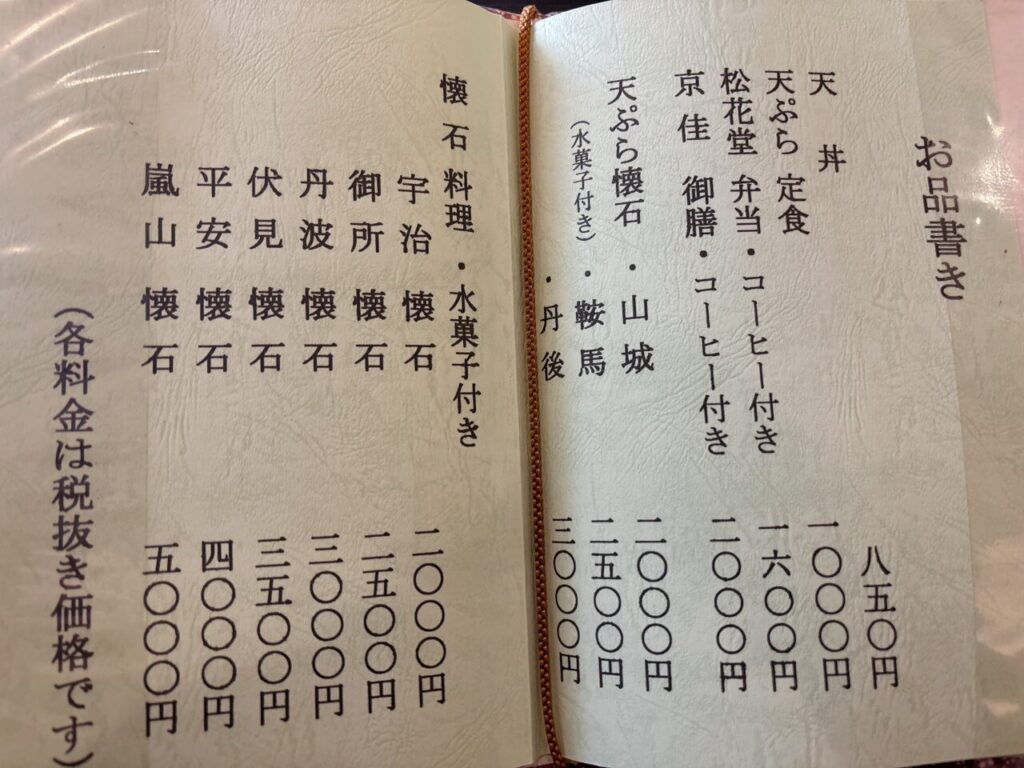 お品書き
天丼 八五〇円
天ぷら 定食 一〇〇〇円
松花堂 弁当・コーヒー付き 一六〇〇円
京佳 御膳・コーヒー付き 二〇〇〇円
天ぷら懐石・山城 二〇〇〇円
(水菓子付き)・鞍馬 二五〇〇円
・丹後 三〇〇〇円
懐石料理・水菓子付き
宇治 懐石 二〇〇〇円
御所 懐石 二五〇〇円
丹波 懐石 三〇〇〇円
伏見 懐石 三五〇〇円
平安 懐石 四〇〇〇円
嵐山 懐石 五〇〇〇円
(各料金は税抜き価格です)